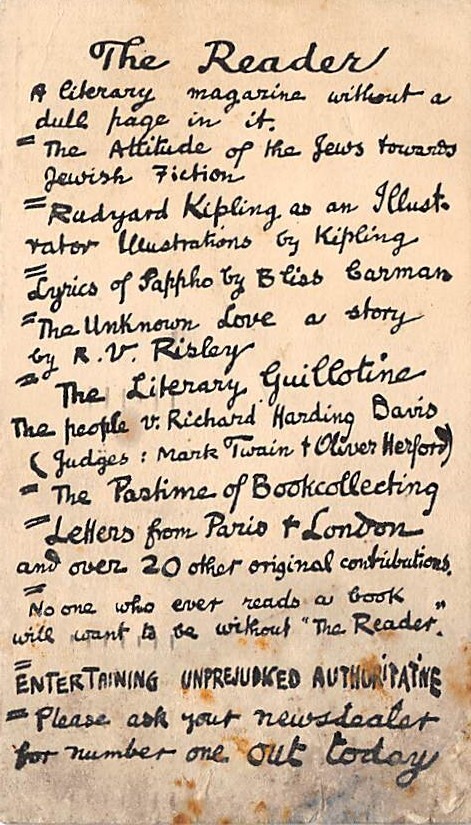 The Reader
A literary magazine without a
dull page in it.
= The Attitude of the Jews towards
Jewish Fiction
= Rudyard Kipling as an Illust-
rator Illustrations by Kipling
= Lyrics of Sappho by Bliss Carman
= The Unknown Love a story
by R. V. Risley
= The Literary Guillotine
The people v. Richard Harding Davis
(Judges: Mark Twain & Oliver Herford)
= The Pastime of Bookcollecting
= Letters from Paris & London
and over 20 other original contributions.
= No one who ever reads a book
will want to be without "The Reader."
= ENTERTAINING UNPREJUDICED AUTHORITATIVE
= Please ask your newsdealer
for number one out today